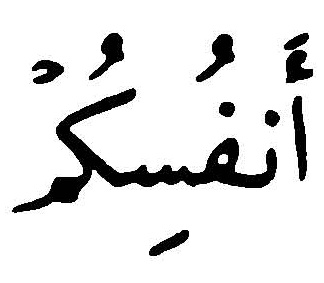 أَنفُسِكُمْ